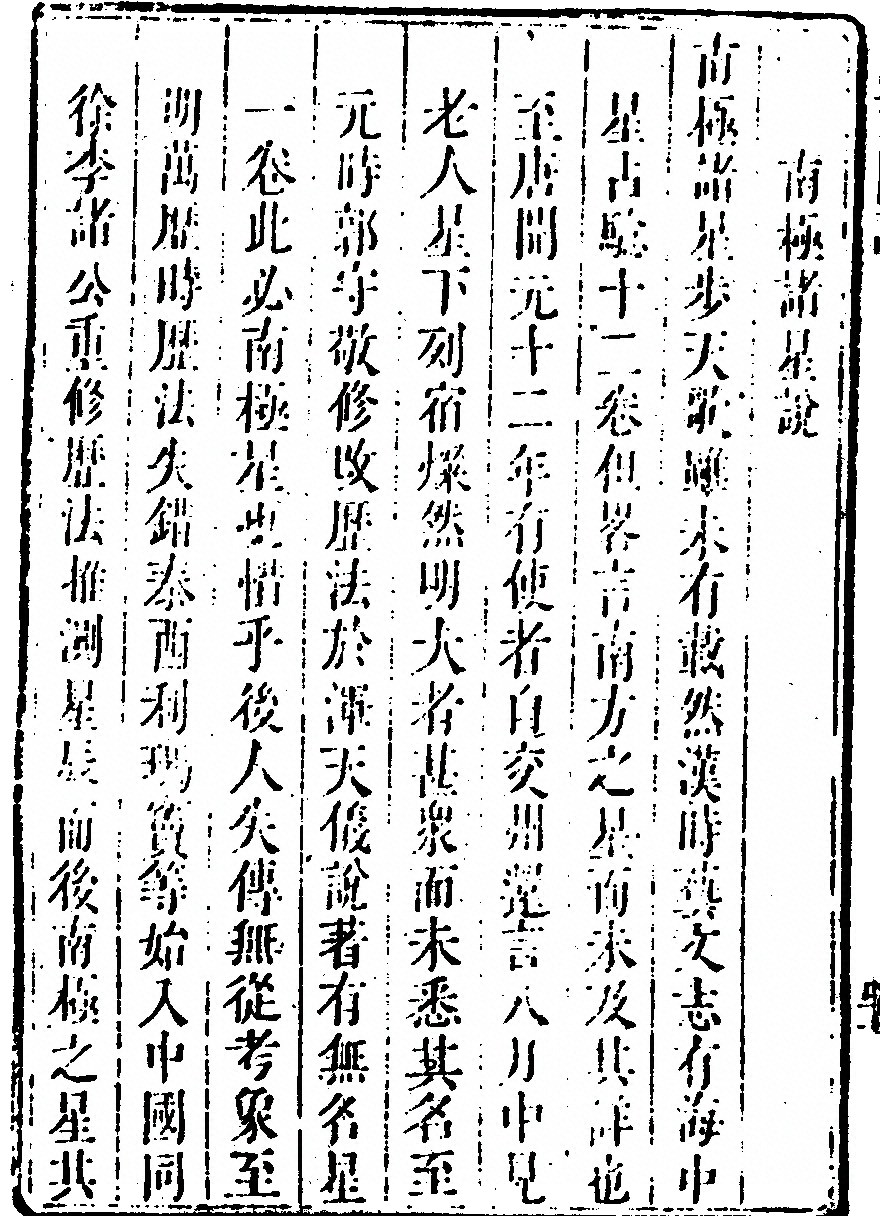 南極諸星說
南極諸星步天歌雖未有載然漢時藝文志有海中
星占驗十二卷但畧言南方之星而未及其詳也
至唐開元十二年有使者自交州還言八月中見
老人星下列宿燦然明大者甚衆而未悉其名至
元時郭守敬修改歷法於渾天儀說著有無名星
一卷此必南極星也惜乎後人失傳無從考象至
明萬歷時歷法失錯泰西利瑪竇等始入中國同
徐李諸公重修歷法推測星辰而後南極之星共